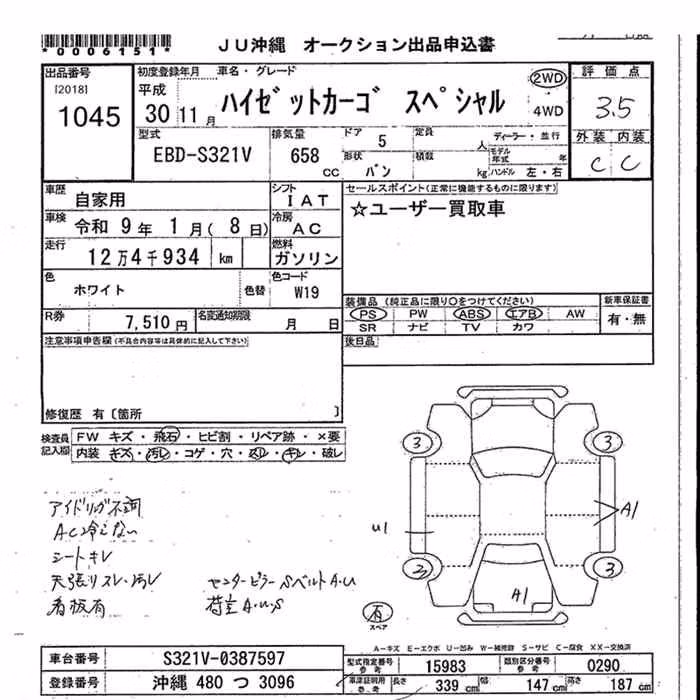 *0006151*
JU沖縄 オークション出品申込書
出品番号
[2018]
1045
初度登録年月
平成
30 11 月
車名・グレード
ハイゼットカーゴ スペシャル
2WD
4WD
評価点
3.5
外装 内装
C C
型式
EBD-S321V
排気量
658
cc
ドア
5
形状
バン
定員
人
積載
kg
ディーラー・並行
モデル年式 年
ハンドル 左・右
車歴
自家用
シフト
IAT
車検
令和 9 年 1 月( 8 日)
冷房
AC
走行
12万4千934 km
燃料
ガソリン
色
ホワイト
色替
色コード
W19
R券
7,510 円
名変通知期限
月 日
セールスポイント(正常に機能するものに限ります)
☆ユーザー買取車
装備品 (純正品に限り〇をつけてください)
PS PW ABS エアB AW
SR ナビ TV カワ
新車保証書
有・無
後日品
注意事項申告欄(不具合内容等は具体的に記入して下さい)
修復歴 有〔箇所 〕
検査員記入欄
FW キズ・飛石・ヒビ割・リペア跡・×要
内装・キズ・汚レ・コゲ・穴・スレ・キレ・破レ
アイドリング不調
AC冷えない
シートキレ
天張りスレ・汚レ
看板有
センターピラー SベルトA・U
荷室A・U・S
3
3
3
3
U1
A1
A1
有
スペア
A-キズ E-エクボ U-凹み W-補修跡 S-サビ C-腐食 XX-交換済
車台番号
S321V-0387597
登録番号
沖縄 480 つ 3096
型式指定番号
参考
15983
類別区分番号
参考
0290
車庫証明用
参考
長さ 339 cm 幅 147 cm 高さ 187 cm